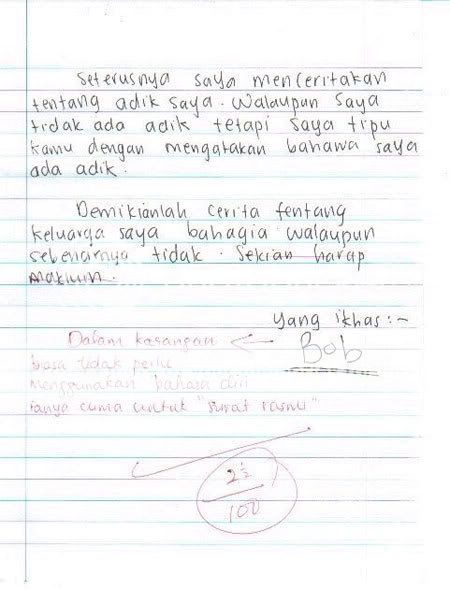 Seterusnya saya menceritakan
tentang adik saya. Walaupun saya
tidak ada adik tetapi saya tipu
kamu dengan mengatakan bahawa saya
ada adik.
Demikianlah cerita tentang
keluarga saya bahagia walaupun
sebenarnya tidak. Sekian harap
maklum.
Yang ikhas:-
Bob
Dalam karangan
biasa tidak perlu
menggunakan bahasa
ianya cuma untuk "surat rasmi"
2½
100